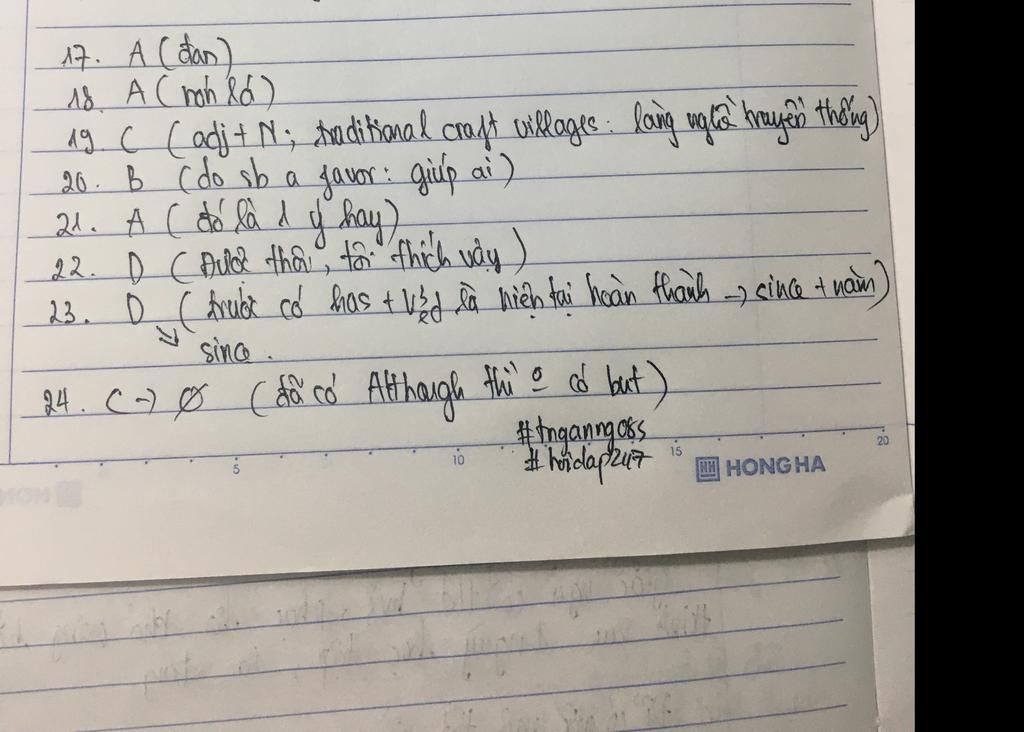 17. A (đan)
18. A (nón lá)
19. C (adj + N; traditional craft villages: làng nghề truyền thống)
20. B (do sb a favor: giúp ai)
21. A (đó là 1 ý hay)
22. D (Được thôi, tôi thích vậy)
23. D (trước có has + V3/ed là hiện tại hoàn thành -> since + năm)
↘ since.
24. C -> ∅ (đã có Although thì o có but)
#tnganngoss
#hoidap247
5 10 15 20
HH HONG HA